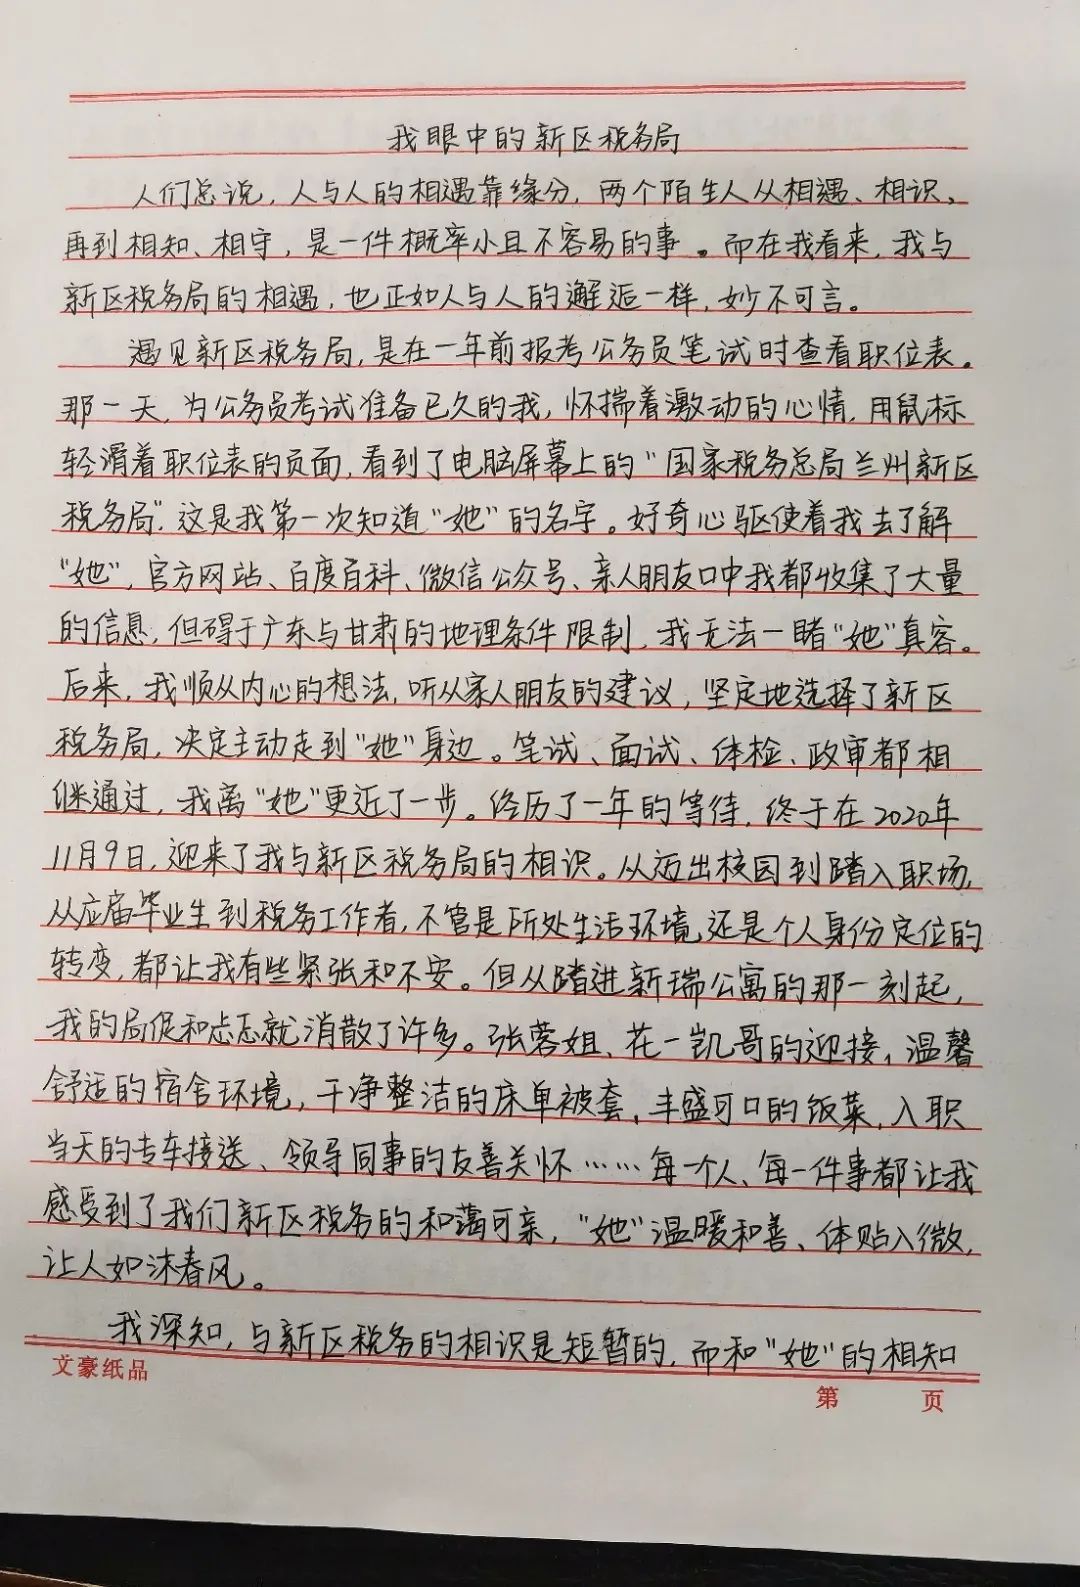 我眼中的新区税务局
人们总说，人与人的相遇靠缘分，两个陌生人从相遇、相识、
再到相知、相守，是一件概率小且不容易的事。而在我看来，我与
新区税务局的相遇，也正如人与人的邂逅一样，妙不可言。
遇见新区税务局，是在一年前报考公务员笔试时查看职位表。
那一天，为公务员考试准备已久的我，怀揣着激动的心情，用鼠标
轻滑着职位表的页面，看到了电脑屏幕上的“国家税务总局兰州新区
税务局”，这是我第一次知道“她”的名字。好奇心驱使着我去了解
“她”，官方网站、百度百科、微信公众号、亲人朋友口中我都收集了大量
的信息，但碍于广东与甘肃的地理条件限制，我无法一睹“她”真容。
后来，我顺从内心的想法，听从家人朋友的建议，坚定地选择了新区
税务局，决定主动走到“她”身边。笔试、面试、体检、政审都相
继通过，我离“她”更近了一步。经历了一年的等待，终于在2020年
11月9日，迎来了我与新区税务局的相识。从迈出校园到踏入职场，
从应届毕业生到税务工作者，不管是所处生活环境，还是个人身份定位的
转变，都让我有些紧张和不安。但从踏进新瑞公寓的那一刻起，
我的局促和忐忑就消散了许多。张蓉姐、花一凯哥的迎接，温馨
舒适的宿舍环境，干净整洁的床单被套，丰盛可口的饭菜，入职
当天的专车接送、领导同事的友善关怀……每一个人、每一件事都让我
感受到了我们新区税务的和蔼可亲，“她”温暖和善、体贴入微，
让人如沐春风。
我深知，与新区税务的相识是短暂的，而和“她”的相知
文豪纸品
第 页